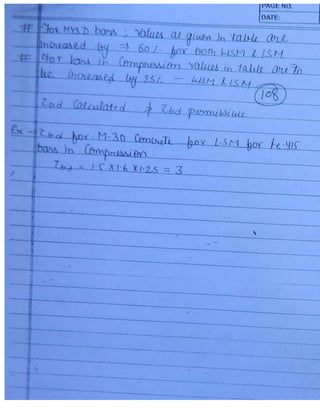 PAGE NO.
DATE:
# For HYSD bars : values at given In table are
Increased by ⇒ 60% for both WSM & LSM
# For bars in Compression values in table are to
be increased by 25% - WSM & LSM
108
τbd Calculated ≯ τbd permissible
Ex → τbd for M-30 Concrete for LSM for Fe-415
bars in Compression
τbd = 1.5 X 1.6 X 1.25 = 3